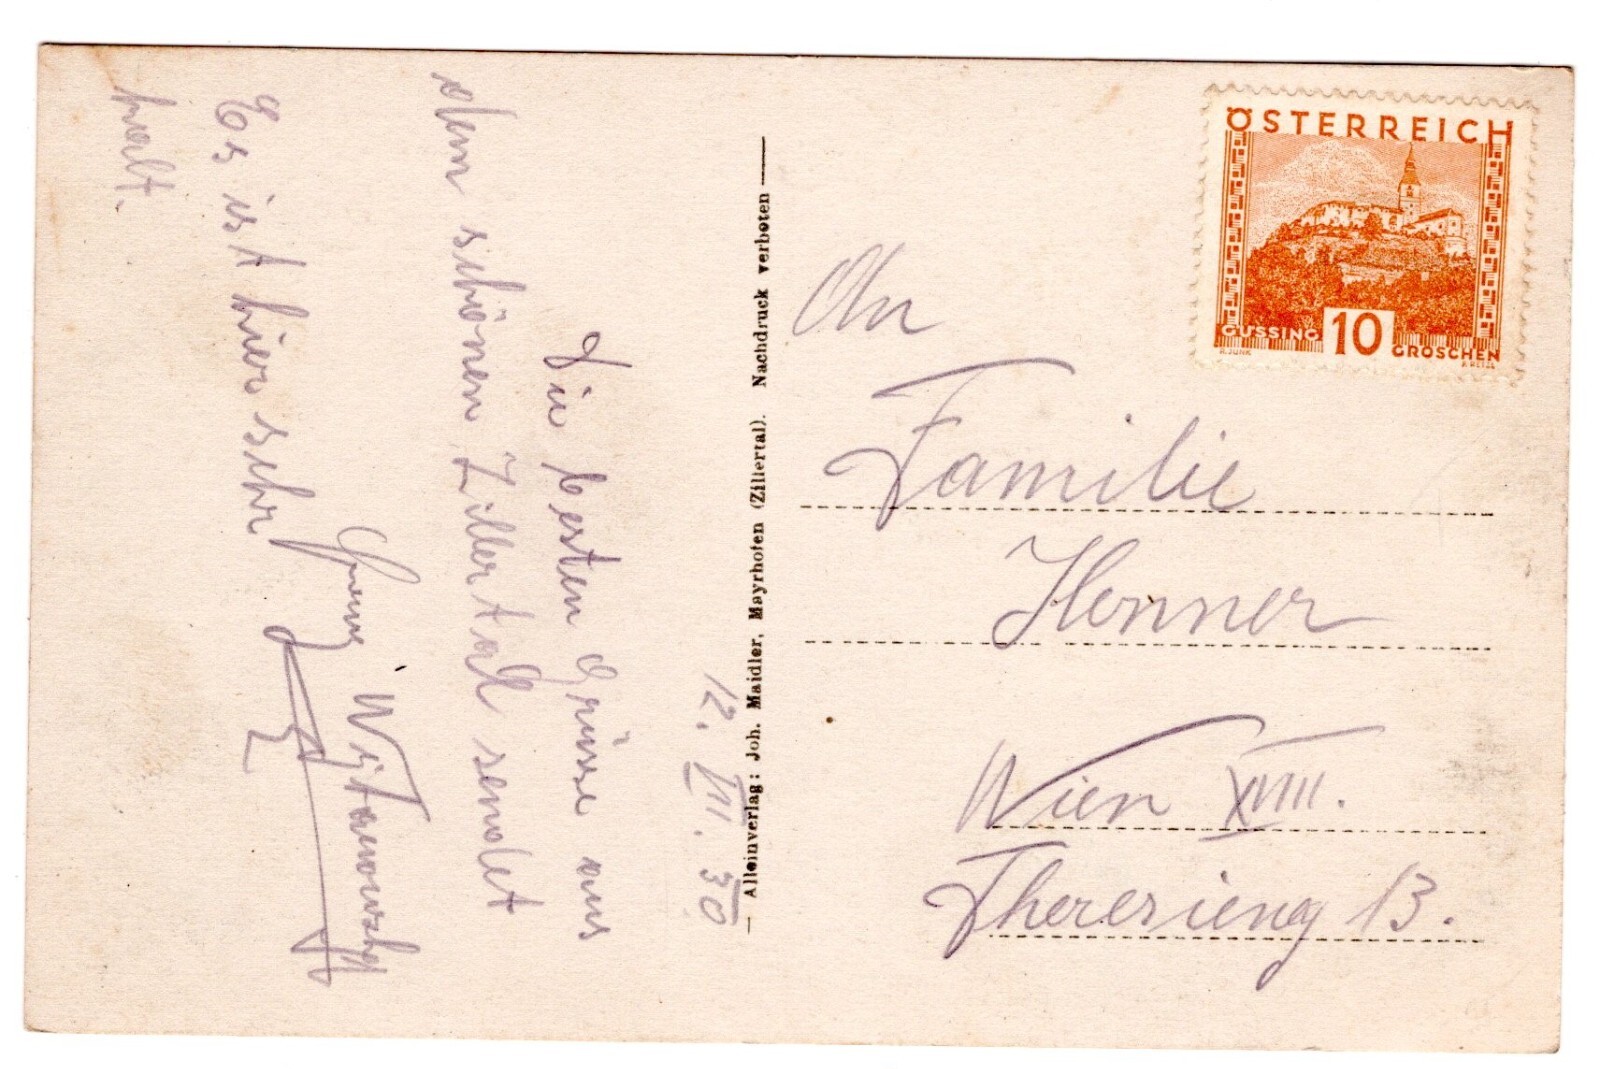 12. VII. 30
Die besten Grüsse aus
dem schönen Zillertal sendet
Es ist hier sehr
kalt.
— Alleinverlag: Joh. Maidler, Mayrhofen (Zillertal). Nachdruck verboten —
ÖSTERREICH
GÜSSING 10 GROSCHEN
An
Familie
Henner
Wien XVIII.
Theresieng 13.